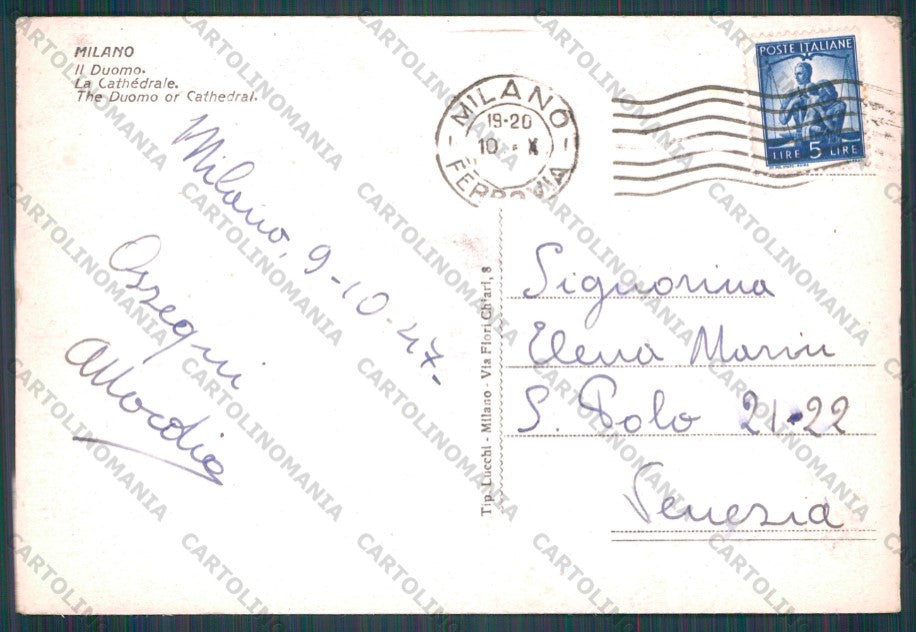 MILANO
Il Duomo.
La Cathédrale.
The Duomo or Cathedral.
MILANO
19-20
10 X
FERROVIA
POSTE ITALIANE
LIRE 5 LIRE
Milano, 9-10-47.
Ossequi
Tip. Lucchi - Milano - Via Fiori Chiari, 8
Signorina
Elena Marini
S. Polo 21-22
Venezia
CARTOLINOMANIA